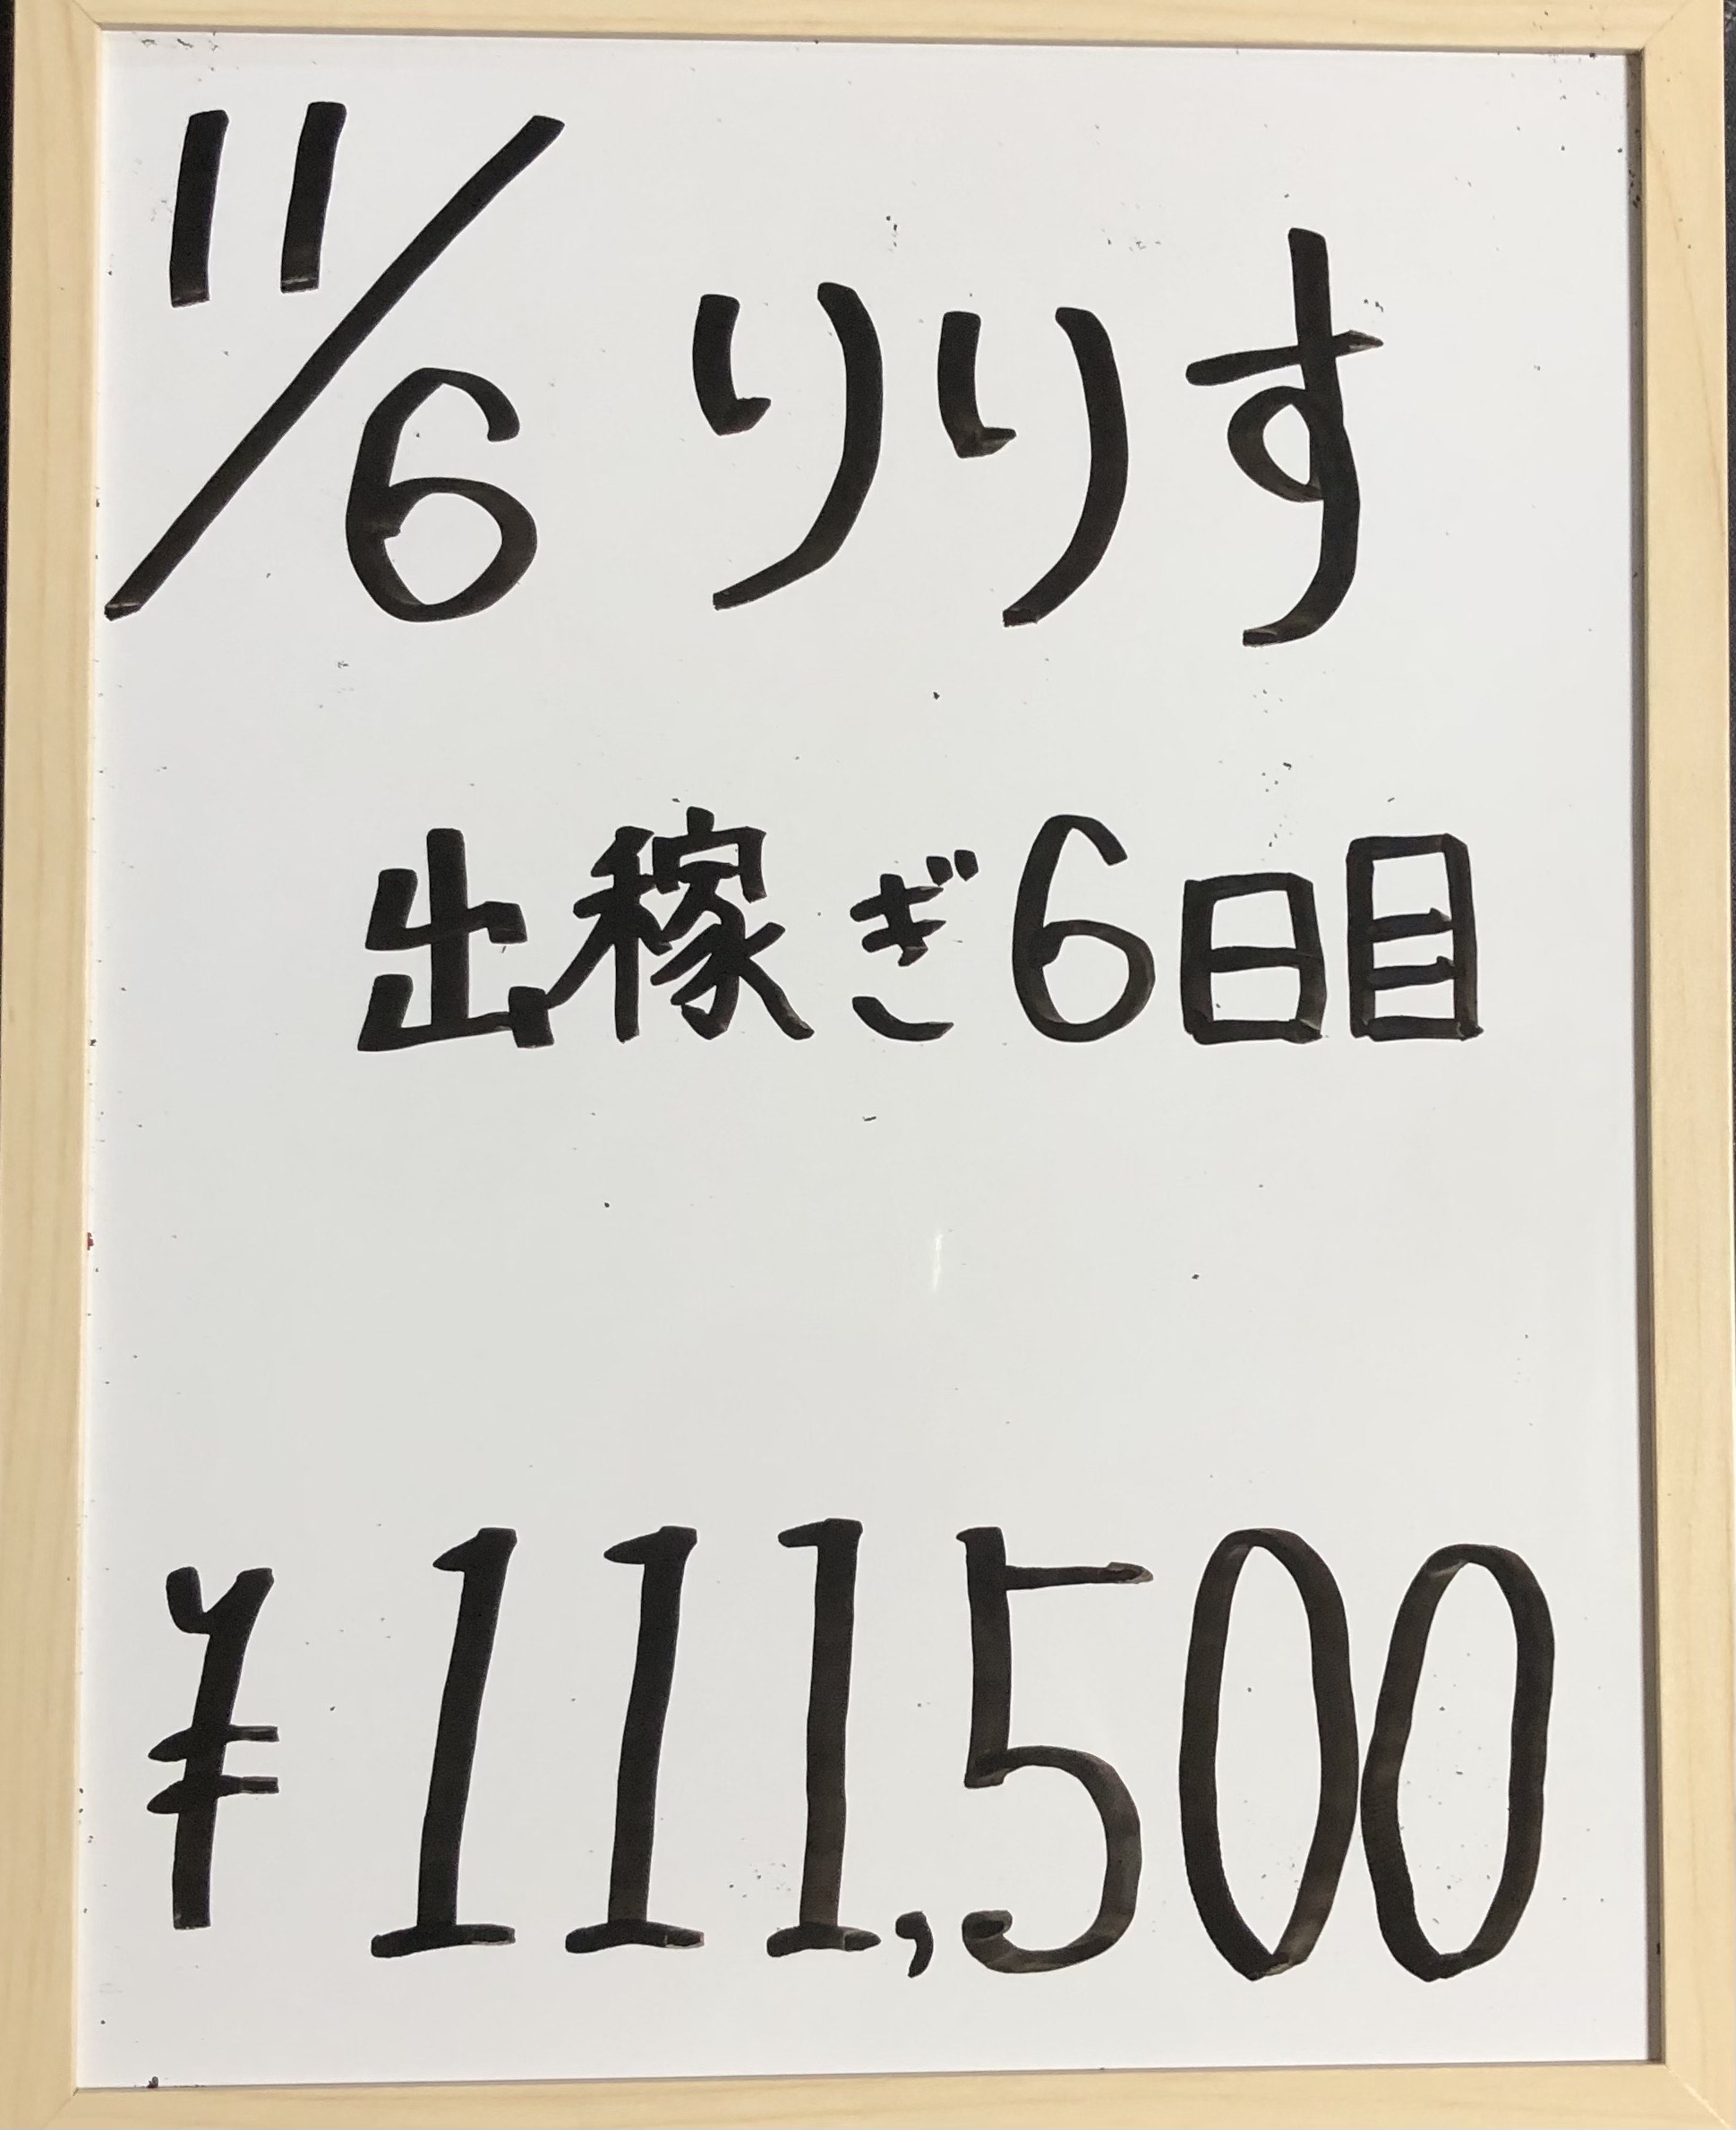 11/6 りりす
出稼ぎ6日目
¥111,500